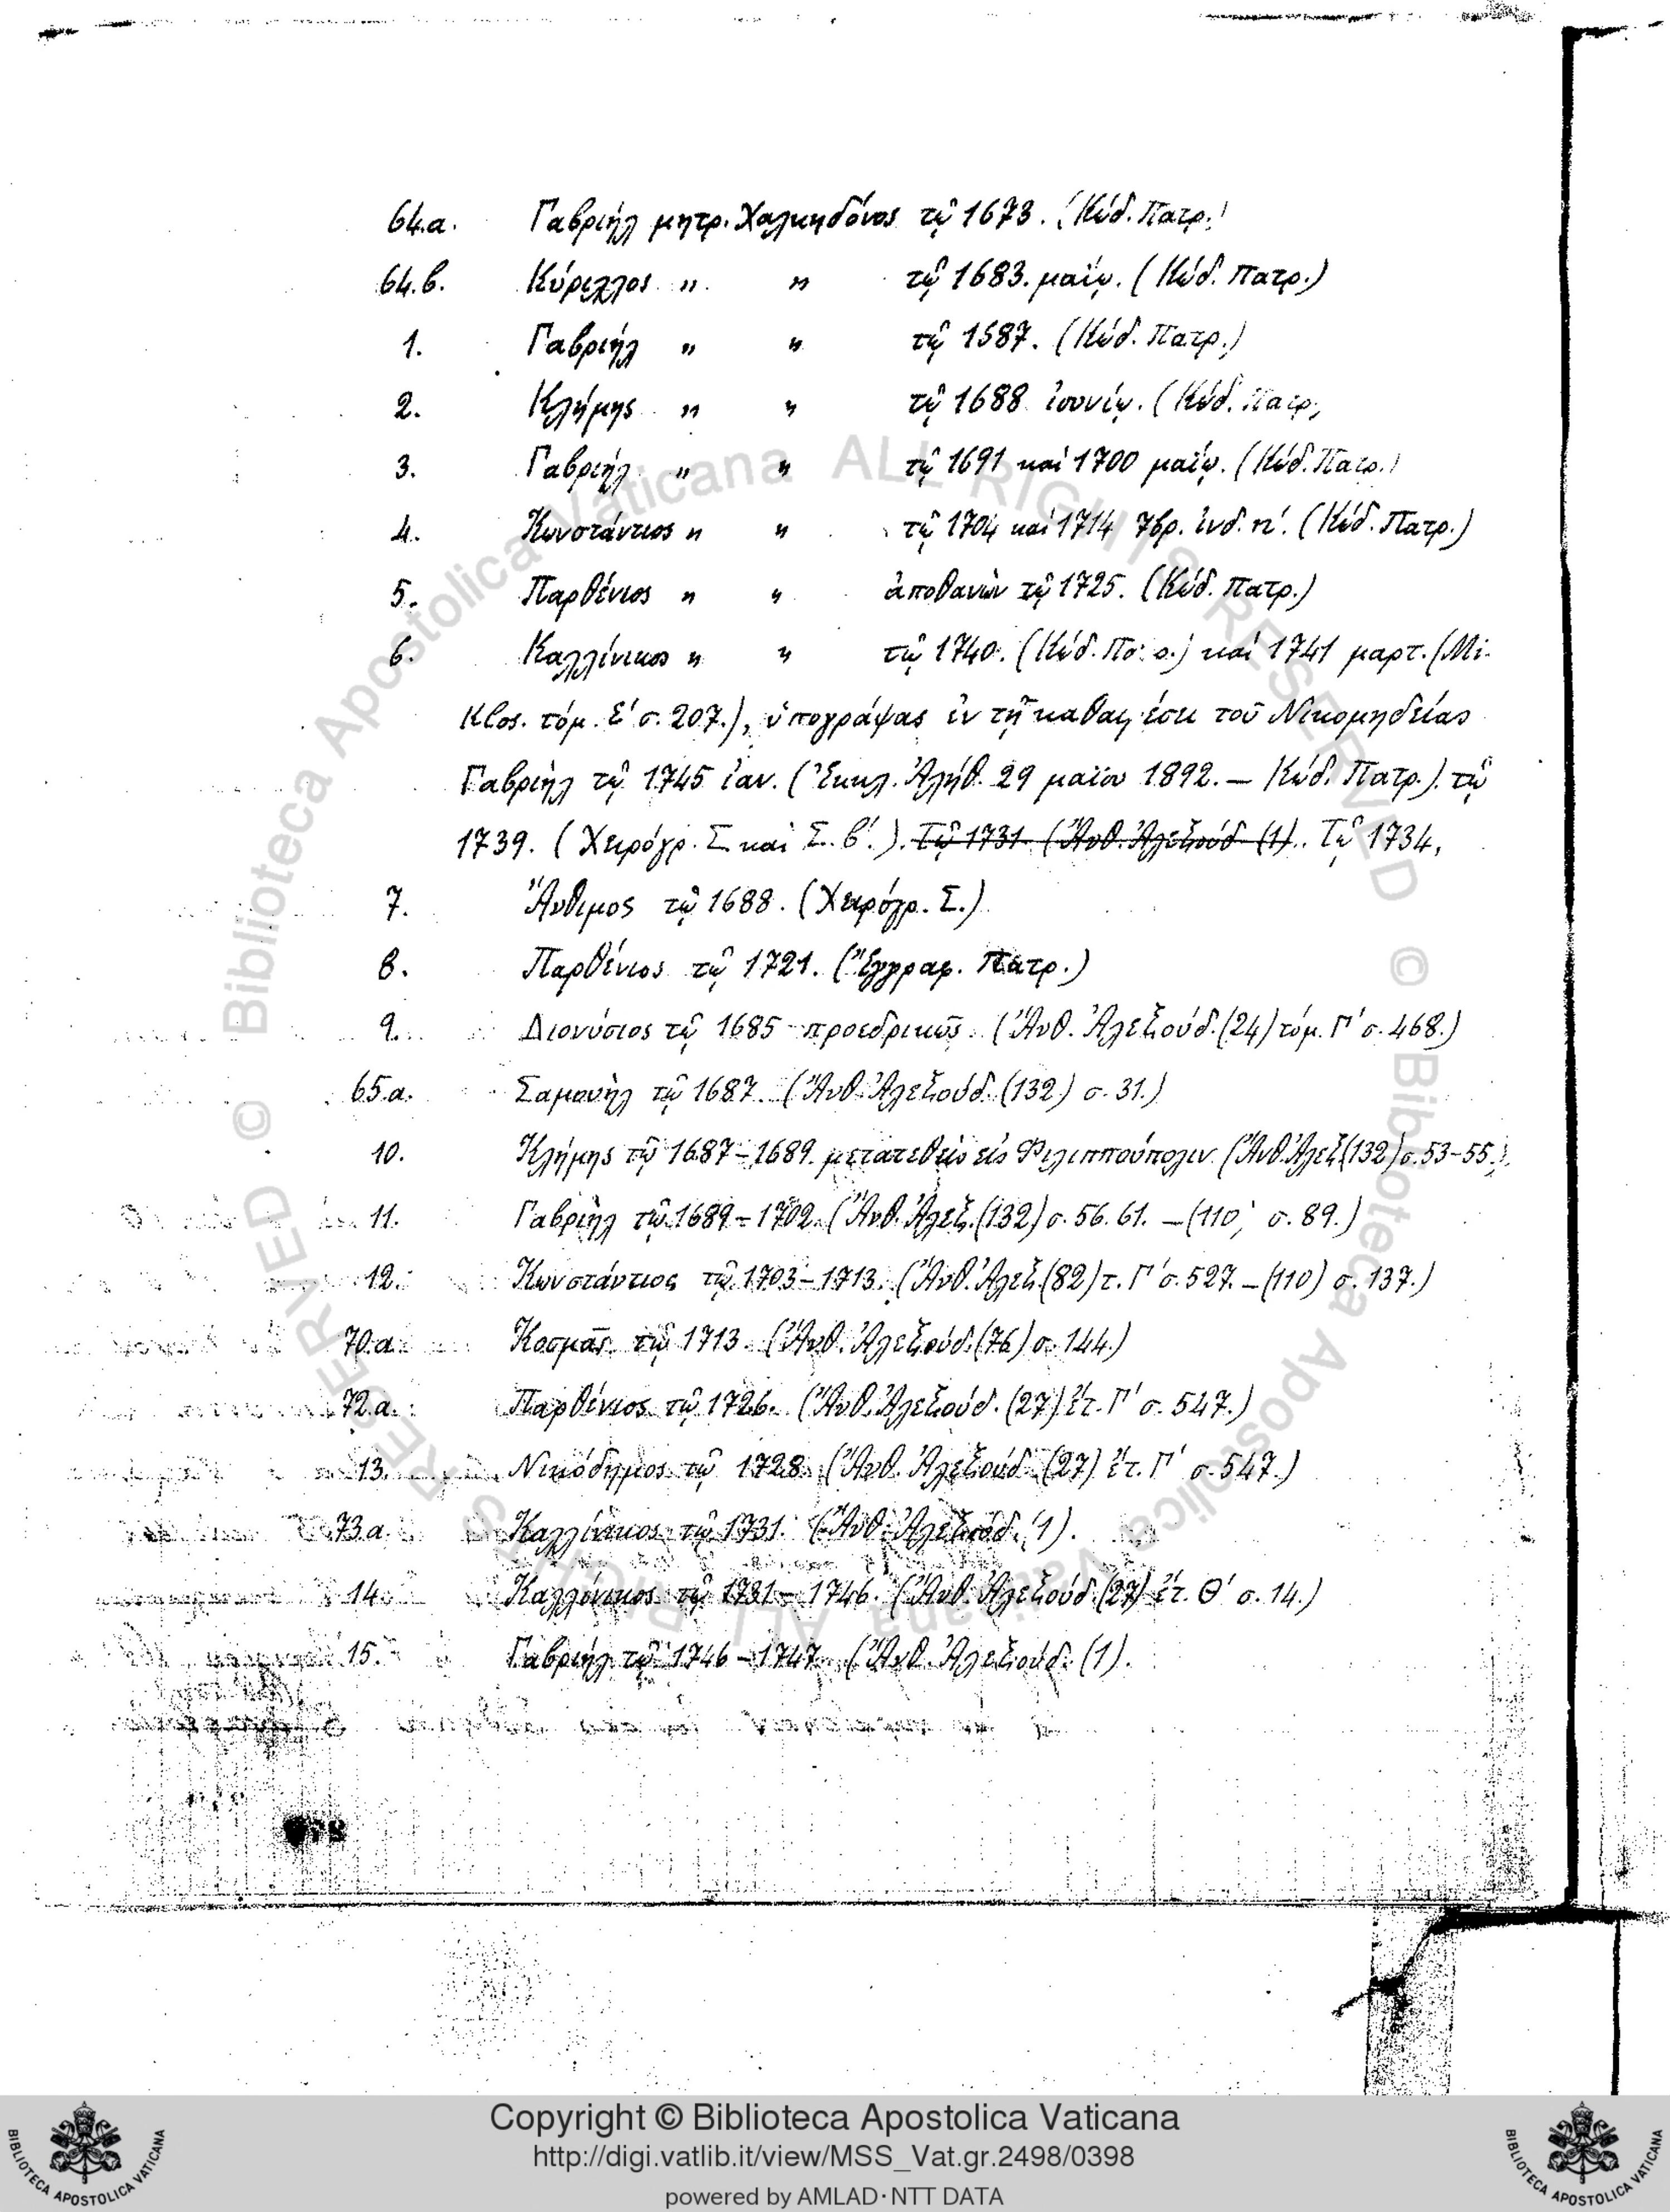 64.α. Γαβριήλ μητρ. Χαλκηδόνος τῷ 1673. (Κώδ. Πατρ.)
64.β. Κύριλλος " " τῷ 1683. μαΐῳ. (Κώδ. Πατρ.)
1. Γαβριήλ " " τῷ 1587. (Κώδ. Πατρ.)
2. Κλήμης " " τῷ 1688 ἰουνίῳ. (Κώδ. Πατρ.
3. Γαβριήλ " " τῷ 1691 καί 1700 μαΐῳ. (Κώδ. Πατρ.)
4. Κωνστάντιος " " τῷ 1704 καί 1714 7βρ. ἰνδ. η'. (Κώδ. Πατρ.)
5. Παρθένιος " " ἀποθανὼν τῷ 1725. (Κώδ. Πατρ.)
6. Καλλίνικος " " τῷ 1740. (Κώδ. Πατρ.) καί 1741 μαρτ. (Mi-
klos. τόμ. Ε' σ. 207.), ὑπογράψας ἐν τῇ καθαιρέσει τοῦ Νικομηδείας
Γαβριήλ τῷ 1745 ἰαν. (Ἐκκλ. Ἀλήθ. 29 μαΐου 1892. — Κώδ. Πατρ.). τῷ
1739. (Χειρόγρ. Σ. καί Σ. β'.). Τῷ 1731. (Ἄνθ. Ἀλεξούδ. (1). Τῷ 1734,
7. Ἄνθιμος τῷ 1688. (Χειρόγρ. Σ.)
8. Παρθένιος τῷ 1721. (Ἔγγραφ. Πατρ.)
9. Διονύσιος τῷ 1685 προεδρικῶς. (Ἄνθ. Ἀλεξούδ. (24) τόμ. Γ' σ. 468.)
65.α. Σαμουὴλ τῷ 1687. (Ἄνθ. Ἀλεξούδ. (132) σ. 31.)
10. Κλήμης τῷ 1687-1689. μετατεθεὶς εἰς Φιλιππούπολιν. (Ἄνθ. Ἀλεξ. (132) σ. 53-55.).
11. Γαβριὴλ τῷ 1689-1702. (Ἄνθ. Ἀλεξ. (132) σ. 56. 61. — (110) σ. 89.)
12. Κωνστάντιος τῷ 1703-1713. (Ἄνθ. Ἀλεξ. (82) τ. Γ' σ. 527. — (110) σ. 137.)
70.α. Κοσμᾶς τῷ 1713. (Ἄνθ. Ἀλεξούδ. (76) σ. 144.)
72.α. Παρθένιος τῷ 1726. (Ἄνθ. Ἀλεξούδ. (27) ἔτ. Γ' σ. 547.)
13. Νικόδημος τῷ 1728. (Ἄνθ. Ἀλεξούδ. (27) ἔτ. Γ' σ. 547.)
73.α. Καλλίνικος τῷ 1731. (Ἄνθ. Ἀλεξούδ. (1).
14. Καλλίνικος τῷ 1731-1746. (Ἄνθ. Ἀλεξούδ. (27) ἔτ. Θ' σ. 14.)
15. Γαβριήλ τῷ 1746-1747. (Ἄνθ. Ἀλεξούδ. (1).
Copyright © Biblioteca Apostolica Vaticana
http://digi.vatlib.it/view/MSS_Vat.gr.2498/0398
powered by AMLAD·NTT DATA